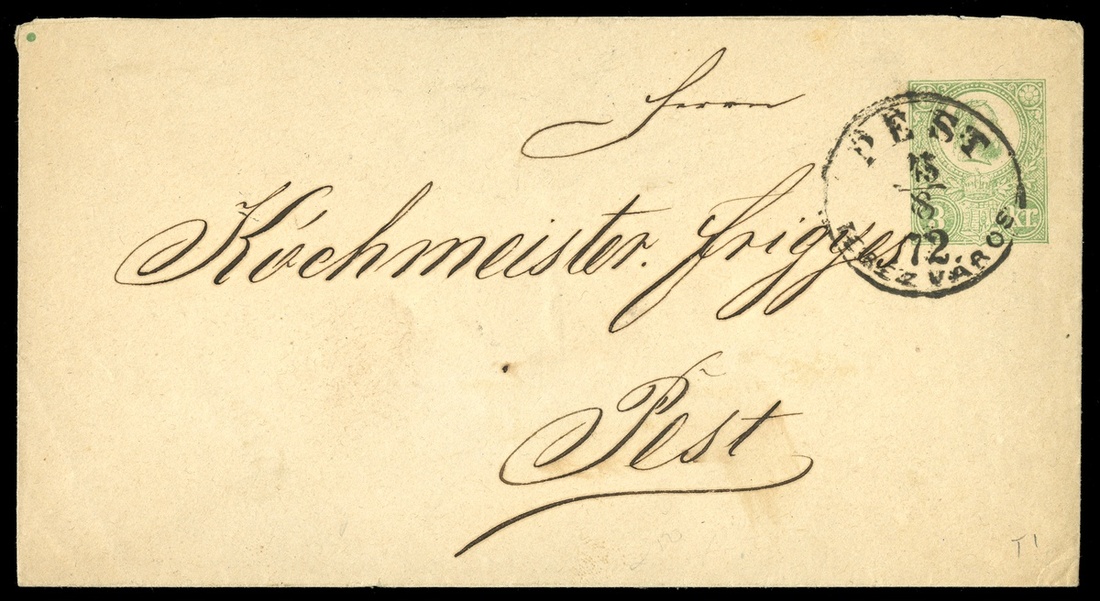 Herrn
Kochmeister Frigyes
Pest
PEST
72.
TERÉZVÁROS
3 KR
T1